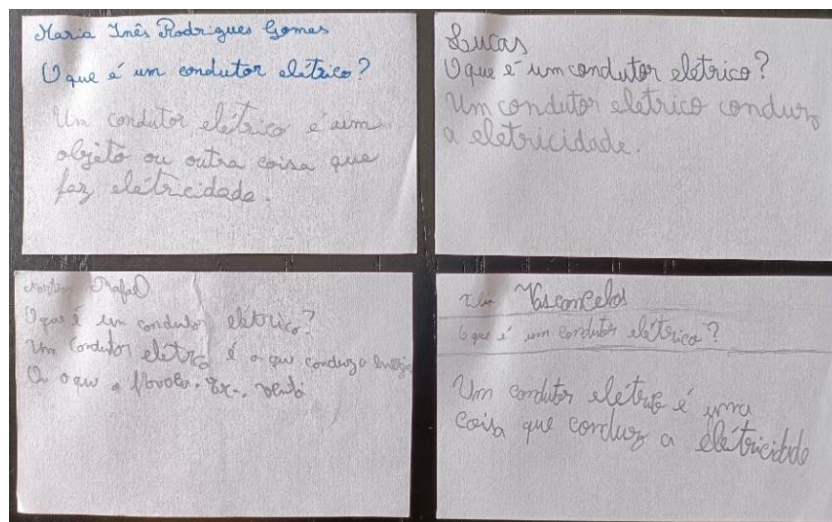 Maria Inês Rodrigues Gomes
O que é um condutor elétrico?
Um condutor elétrico é aum
objeto ou outra coisa que
faz elétricidade.
Lucas
O que é um condutor elétrico?
Um condutor eletrico conduz
a eletricidade.
Rafael
O que é um condutor elétrico?
Um condutor é o que conduz a
O o que a
Vasconcelos
O que é um condutor elétrico?
Um condutor elétrico é uma
coisa que conduz a elétricidade